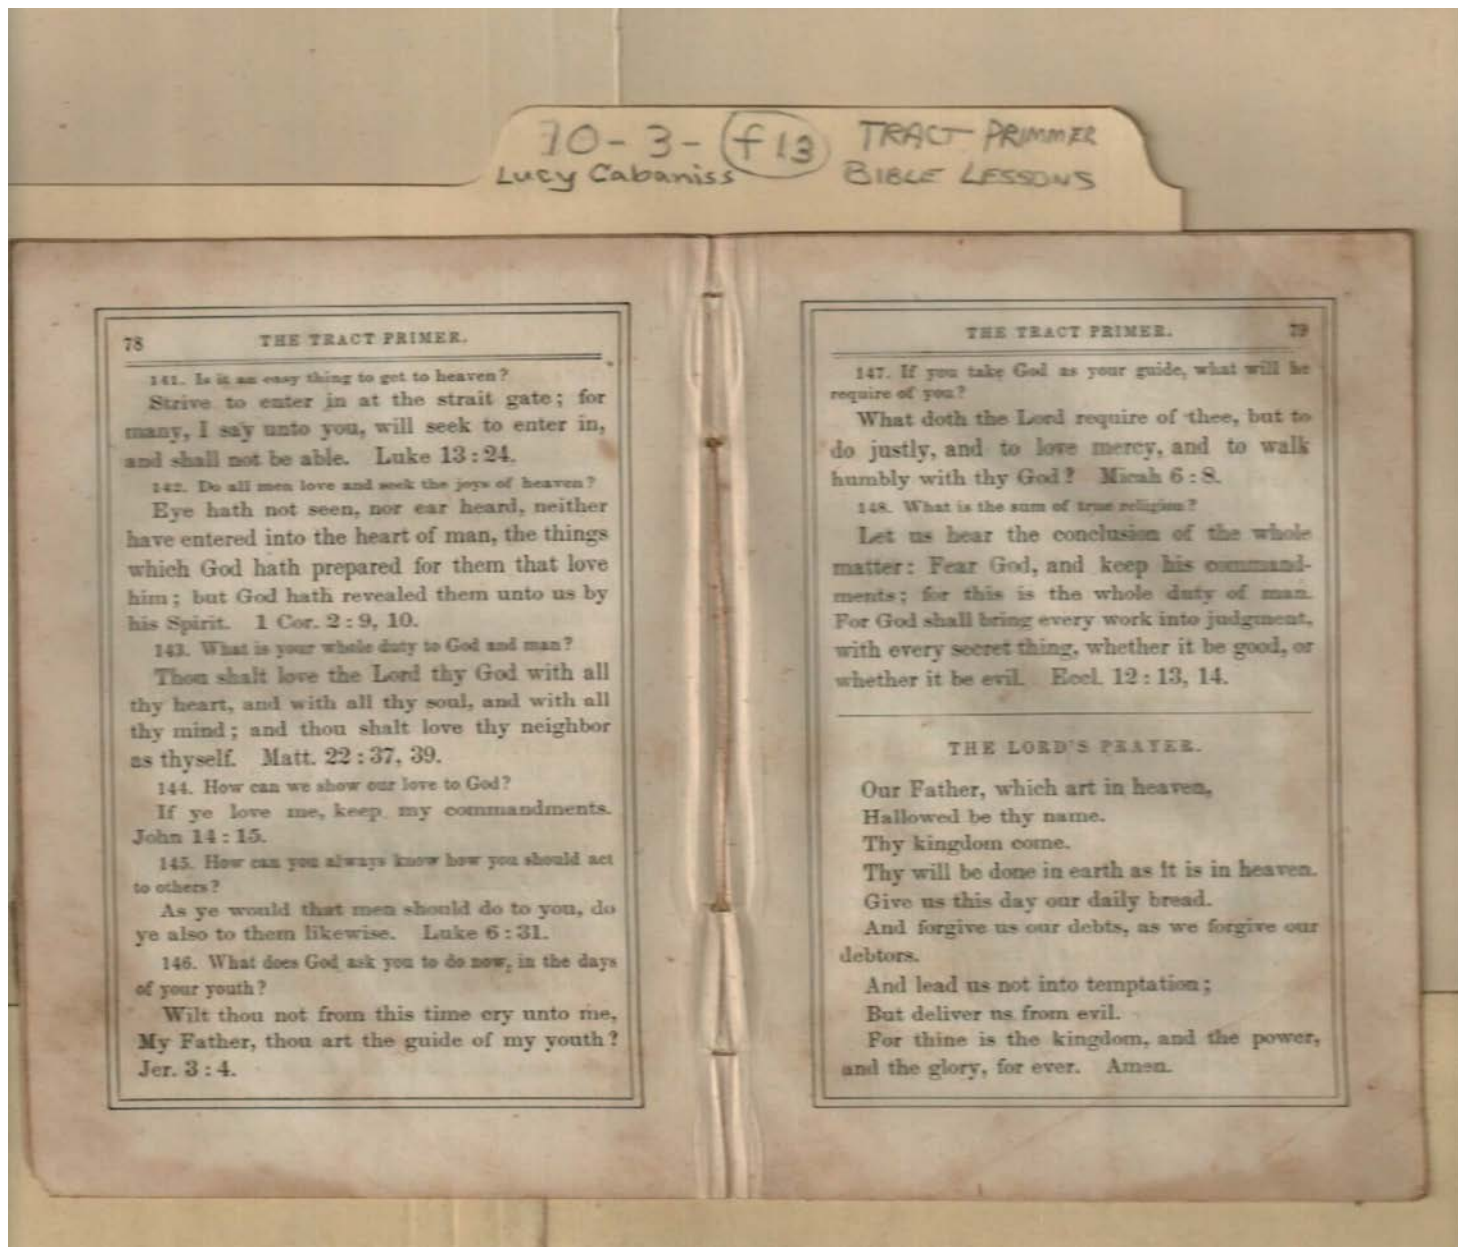 10-3-f13 TRACT PRIMMER
Lucy Cabaniss BIBLE LESSONS
78 THE TRACT PRIMER.
141. Is it an easy thing to get to heaven?
Strive to enter in at the strait gate; for
many, I say unto you, will seek to enter in,
and shall not be able. Luke 13:24.
142. Do all men love and seek the joys of heaven?
Eye hath not seen, nor ear heard, neither
have entered into the heart of man, the things
which God hath prepared for them that love
him; but God hath revealed them unto us by
his Spirit. 1 Cor. 2:9, 10.
143. What is your whole duty to God and man?
Thou shalt love the Lord thy God with all
thy heart, and with all thy soul, and with all
thy mind; and thou shalt love thy neighbor
as thyself. Matt. 22:37, 39.
144. How can we show our love to God?
If ye love me, keep my commandments.
John 14:15.
145. How can you always know how you should act
to others?
As ye would that men should do to you, do
ye also to them likewise. Luke 6:31.
146. What does God ask you to do now, in the days
of your youth?
Wilt thou not from this time cry unto me,
My Father, thou art the guide of my youth?
Jer. 3:4.
THE TRACT PRIMER. 79
147. If you take God as your guide, what will he
require of you?
What doth the Lord require of thee, but to
do justly, and to love mercy, and to walk
humbly with thy God? Micah 6:8.
148. What is the sum of true religion?
Let us hear the conclusion of the whole
matter: Fear God, and keep his command-
ments; for this is the whole duty of man.
For God shall bring every work into judgment,
with every secret thing, whether it be good, or
whether it be evil. Eccl. 12:13, 14.
THE LORD'S PRAYER.
Our Father, which art in heaven,
Hallowed be thy name.
Thy kingdom come.
Thy will be done in earth as it is in heaven.
Give us this day our daily bread.
And forgive us our debts, as we forgive our
debtors.
And lead us not into temptation;
But deliver us from evil.
For thine is the kingdom, and the power,
and the glory, for ever. Amen.